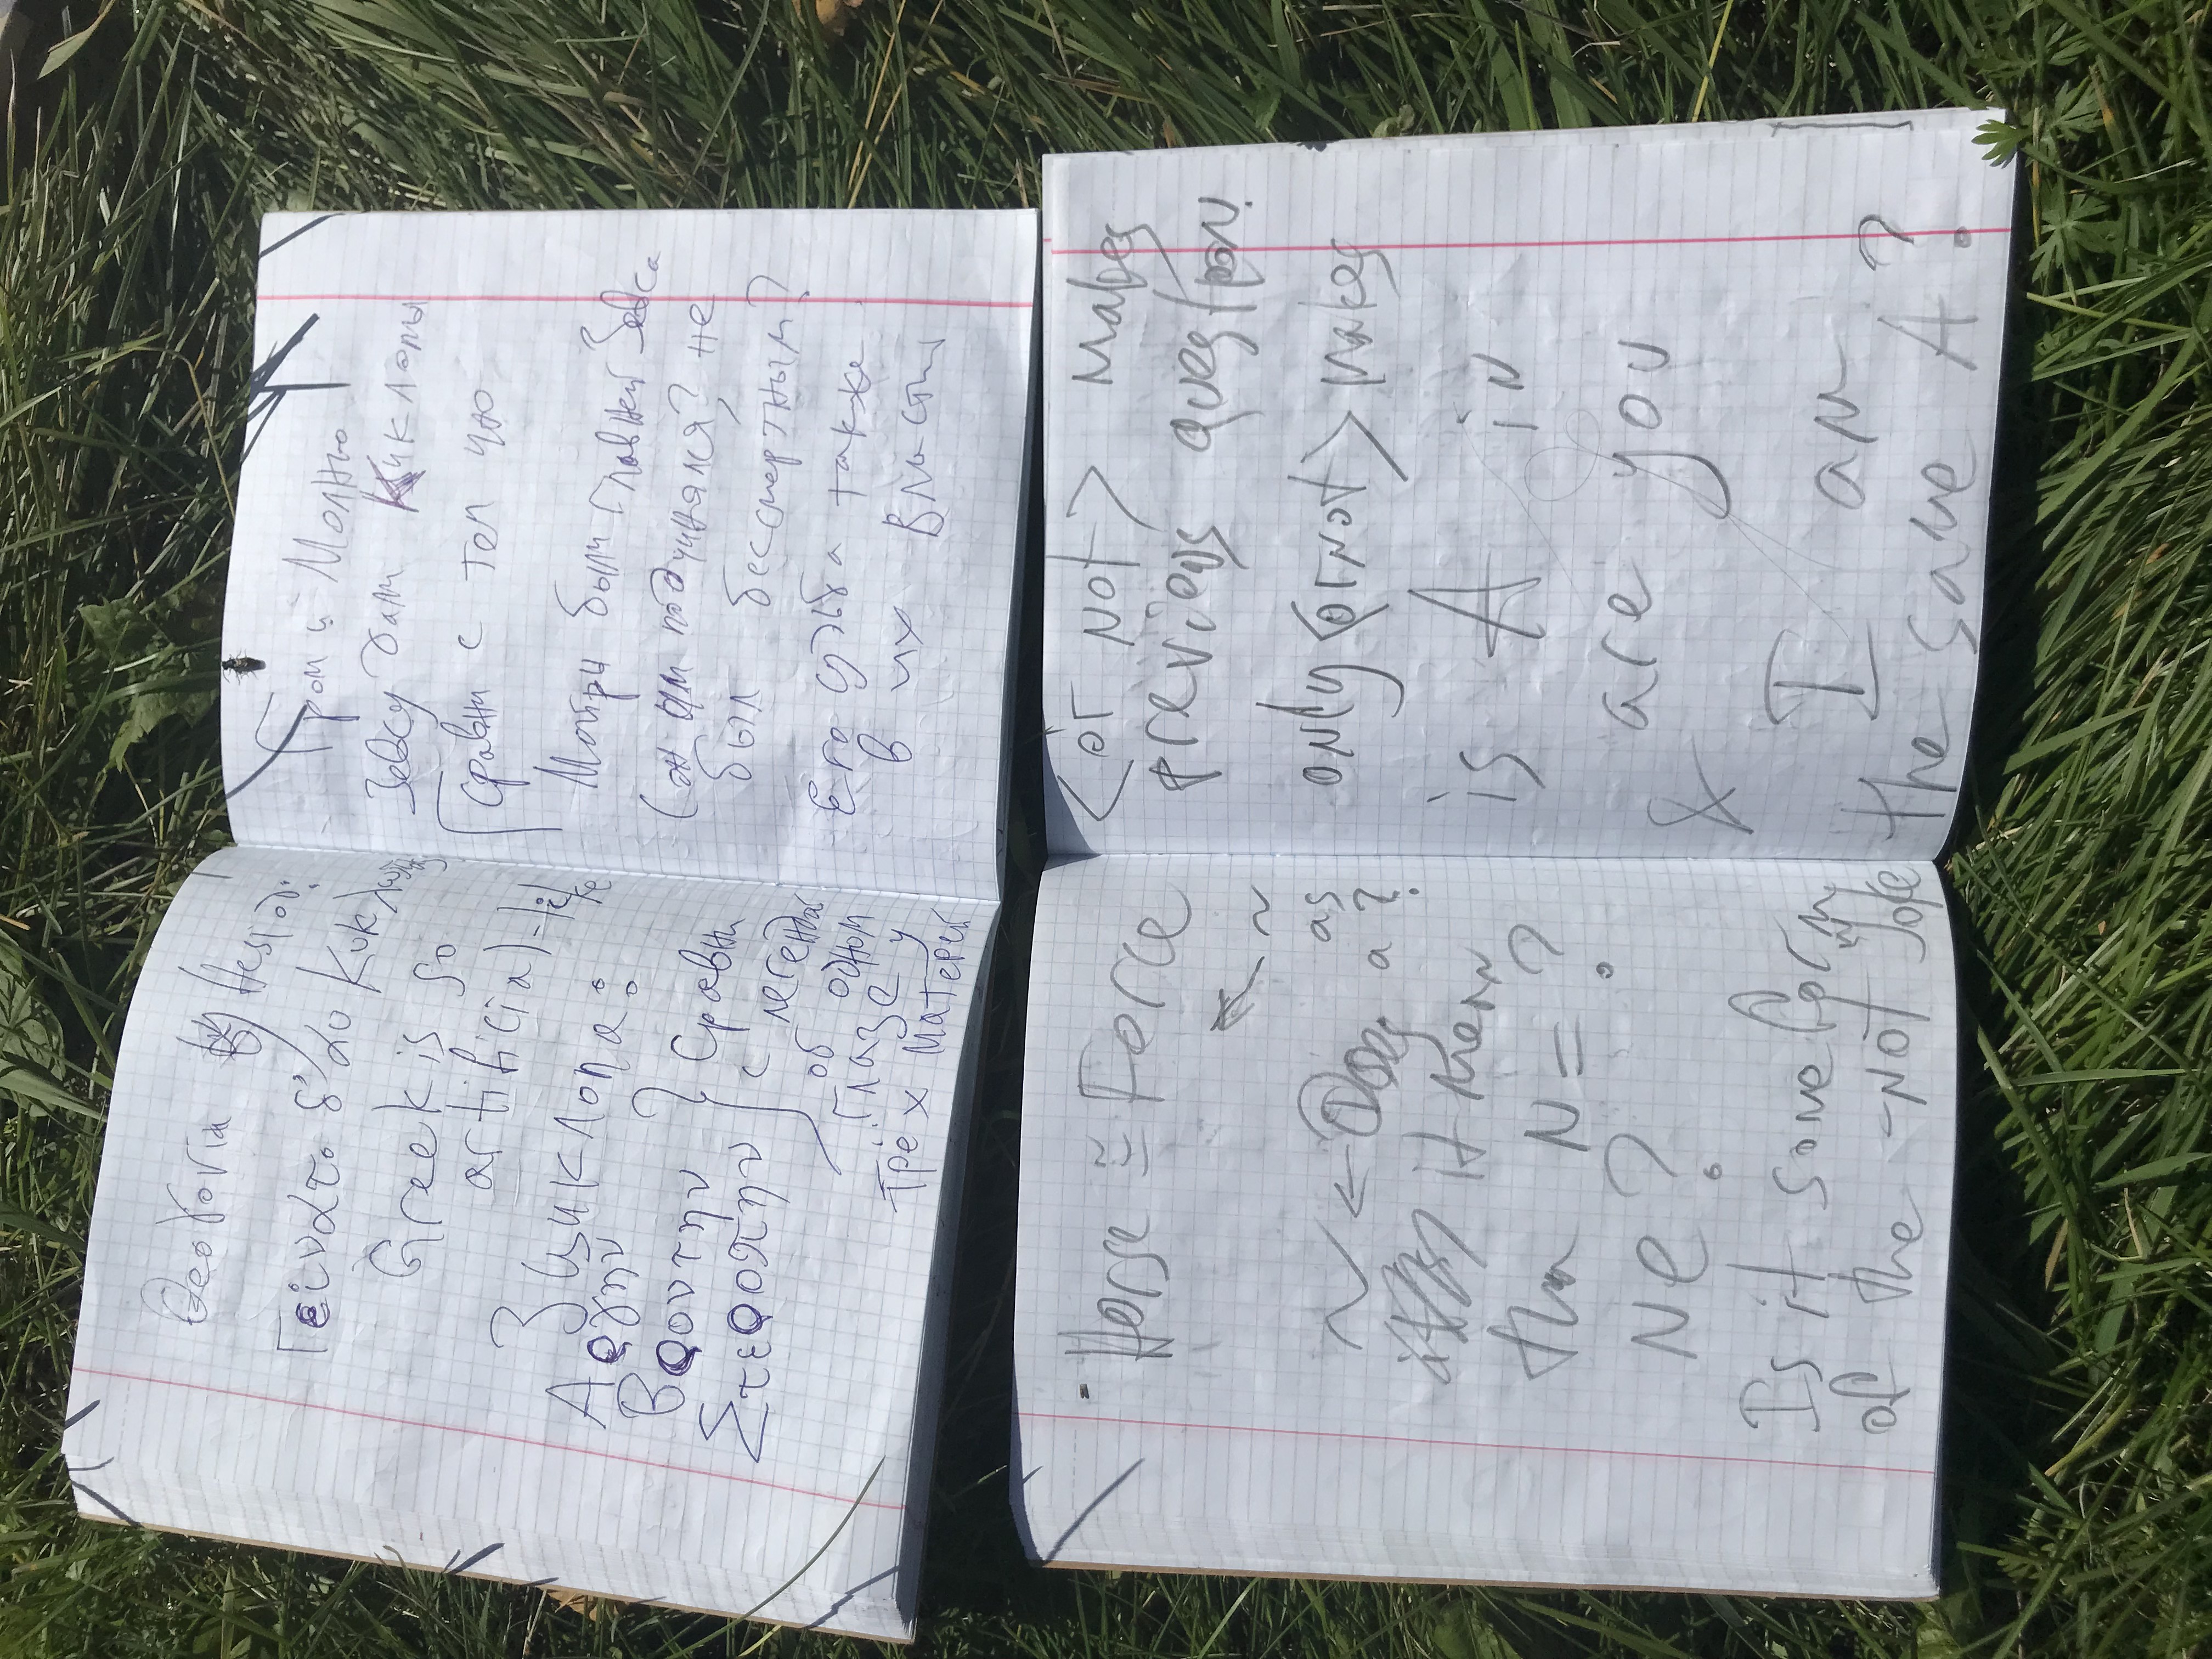 Θεογονία by Hesiod:
Γείνατο δ' αυ Κυκλωπας
Greek is so
artificial-like
3 циклопа:
Αργην
Βροντην
Στεροπην
Сравни
с легендой
об одном
глазе у
трёх матерей
Гром и Молнью
Зевсу дали Киклопы
Сравни с тем что
Мойры были главней Зевса
(он им подчинялся? не
был бессмертным?
Его судьба также
в их власти
Horse ≅ Force
~
~ ← Does as
a ?
it mean
tha N = ?
Ne ?
Is it some form
of the -NOT joke
<or not> makes
previous question.
only <or not> makes
is A in
are you
&
I am
the same A ?